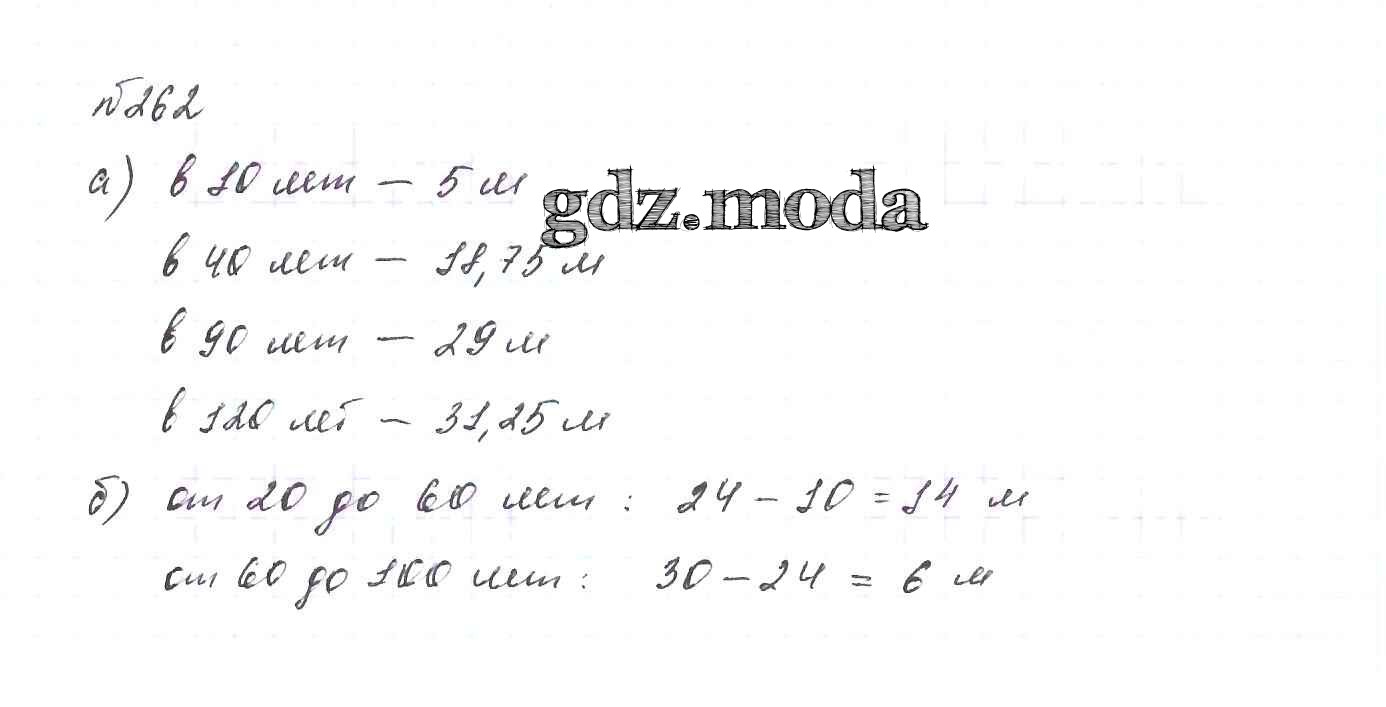 №262
а) в 10 лет – 5 м
gdz.moda
в 40 лет – 18,75 м
в 90 лет – 29 м
в 120 лет – 31,25 м
б) от 20 до 60 лет : 24 – 10 = 14 м
от 60 до 100 лет : 30 – 24 = 6 м